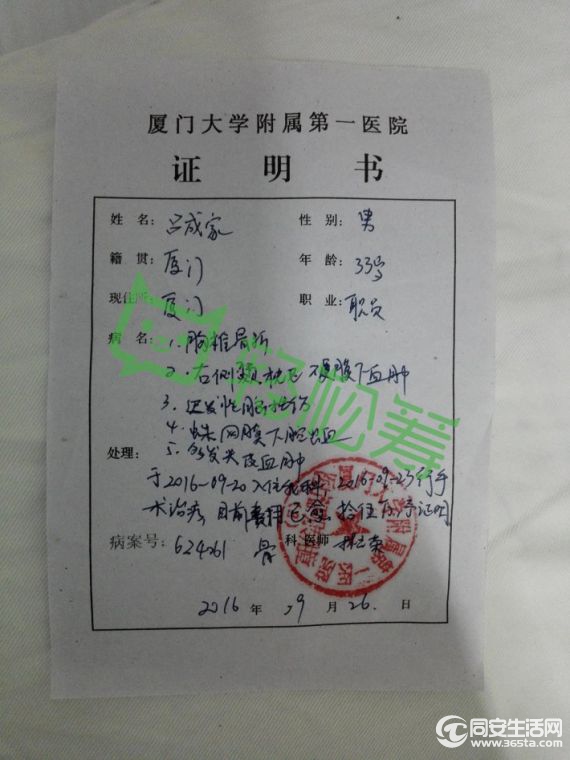 厦门大学附属第一医院
证明书
姓名: 吕成家 性别: 男
籍贯: 厦门 年龄: 33岁
现住所: 厦门 职业: 职员
病名: 1. 胸椎骨折
2. 右侧颞枕 硬膜下血肿
3. 性脑损伤
4. 蛛网膜下腔出血
5. 多发头皮血肿
处理: 于2016-09-20入住我科, 2016-09-23行手
术治疗, 目前费用 证明
病案号: 624061 骨 科 医师
2016 年 09 月 26. 日
轻松筹
同安生活网
www.365ta.com